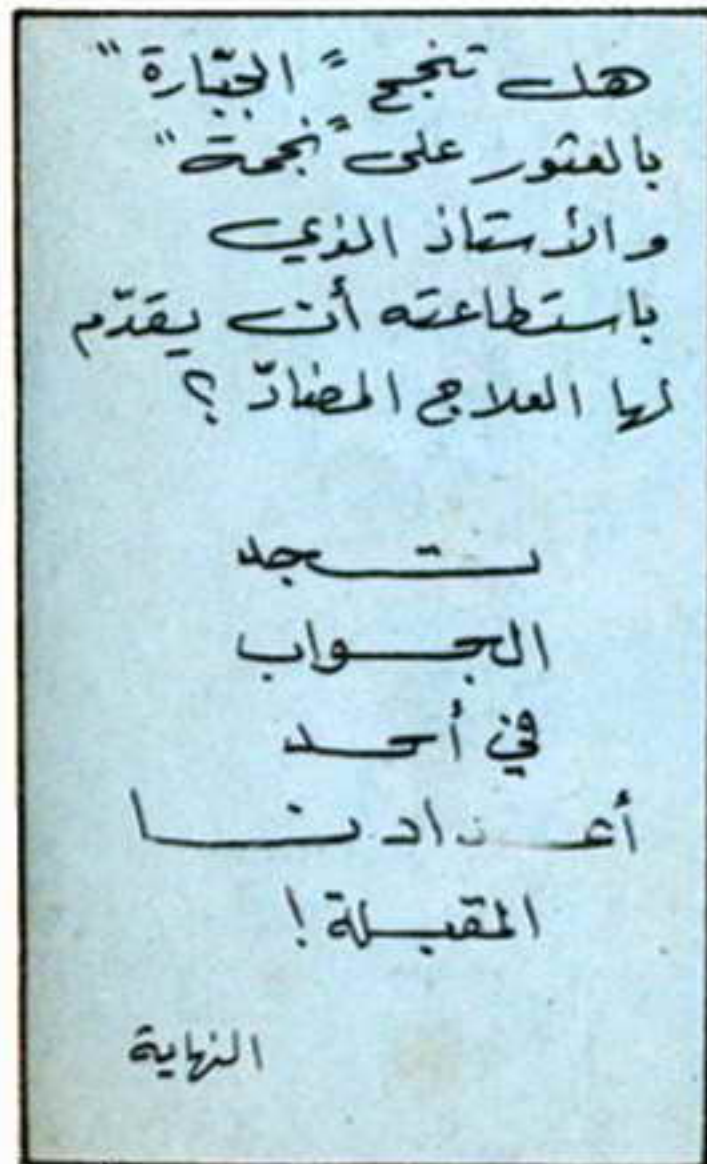 هل تنجح "الجبّارة"
بالعثور على "نجمة"
والأستاذ الذي
باستطاعته أن يقدّم
لها العلاج المضادّ ؟
ستجد
الجواب
في أحد
أعدادنا
المقبلة !
النهاية